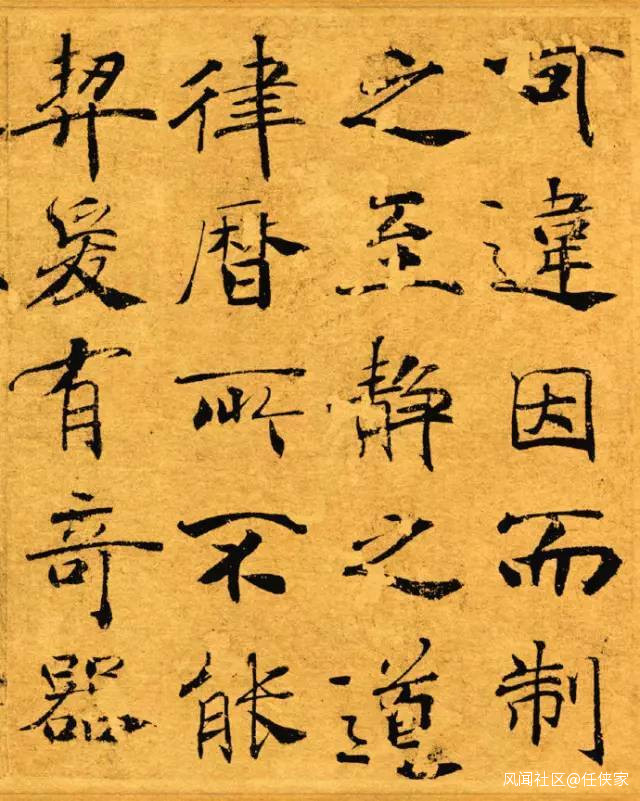 可違因而制
之至静之道
律曆所不能
契爰有奇器
风闻社区@任侠家